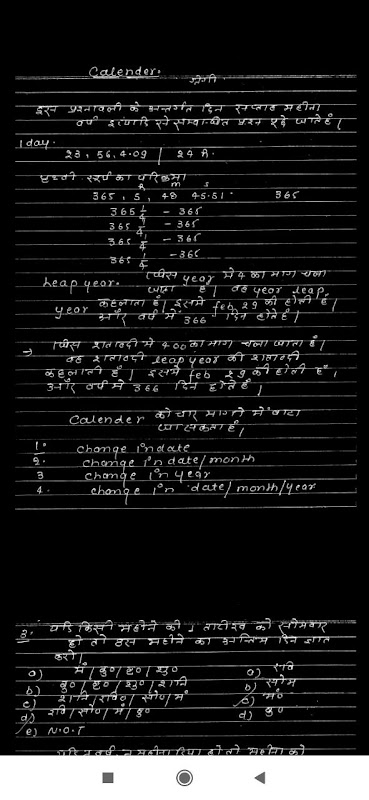 Calender.
श्रेणी
इस प्रश्नावली के अन्तर्गत दिन सप्ताह महीना
वर्ष इत्यादि से सम्बन्धित प्रश्न पूछे जाते हैं |
1 day.
23, 56, 4.09 | 24 h.
पृथ्वी सूर्य का परिक्रमा
h m s
365, 5, 48 45.51. 365
365 1/4 - 365
365 1/4 - 365
365 1/4 - 365
365 1/4 - 365
Leap year. जिस year में 4 का भाग चला
जाता है | वह year leap
year कहलाता है | इसमें feb 29 की होती है |
और वर्ष में 366 दिन होते हैं |
→ जिस शताब्दी में 400 का भाग चला जाता है |
वह शताब्दी leap year की शताब्दी
कहलाती है | इसमें feb 29 की होती है,
और वर्ष में 366 दिन होते हैं |
Calender को चार भागो में बाटा
जा सकता है |
1. change in date
2. change in date/month
3 change in year
4. change in date/month/year
3. यदि किसी महीने की 1 तारीख को सोमवार
हो तो उस महीने का अन्तिम दिन ज्ञात
करो |
a) मं/बु०/गु०/शु० a) रवि
b) बु०/गु०/शु०/शनि b) सोम
c) शनि/रवि०/सो०/मं c) मं०
d) रवि/सो०/मं/बु० d) बु०
e) N.O.T